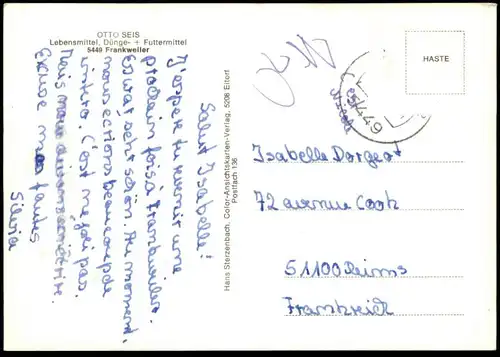 OTTO SEIS
Lebensmittel, Dünge- + Futtermittel
5449 Frankweiler
Salut Isabelle!
J'espère tu une
prochain fois à Frankweiler.
Es war sehr schön. Au moment,
nous ections beaucoup de
. C'est ne joli pas.
Mais nous
Excuse mes fautes
Silvia
Hans Sterzenbach, Color-Ansichtskarten-Verlag, 5208 Eitorf
Postfach 136
HASTE
Isabelle Dorgeot
72 avenue Cook
51100 Reims
Frankreich